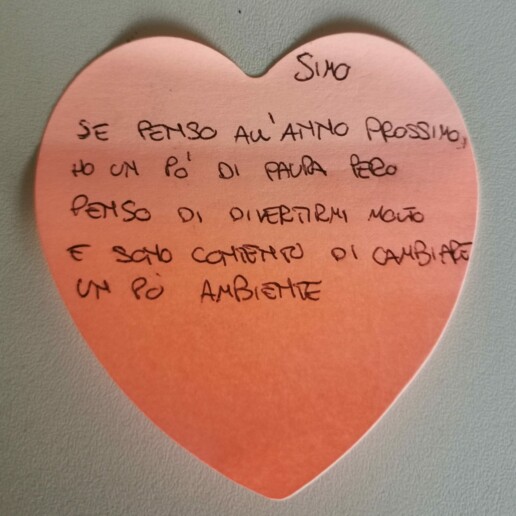 SIMO
SE PENSO ALL'ANNO PROSSIMO,
HO UN PÒ DI PAURA PERO
PENSO DI DIVERTIRMI MOLTO
E SONO CONTENTO DI CAMBIARE
UN PÒ AMBIENTE